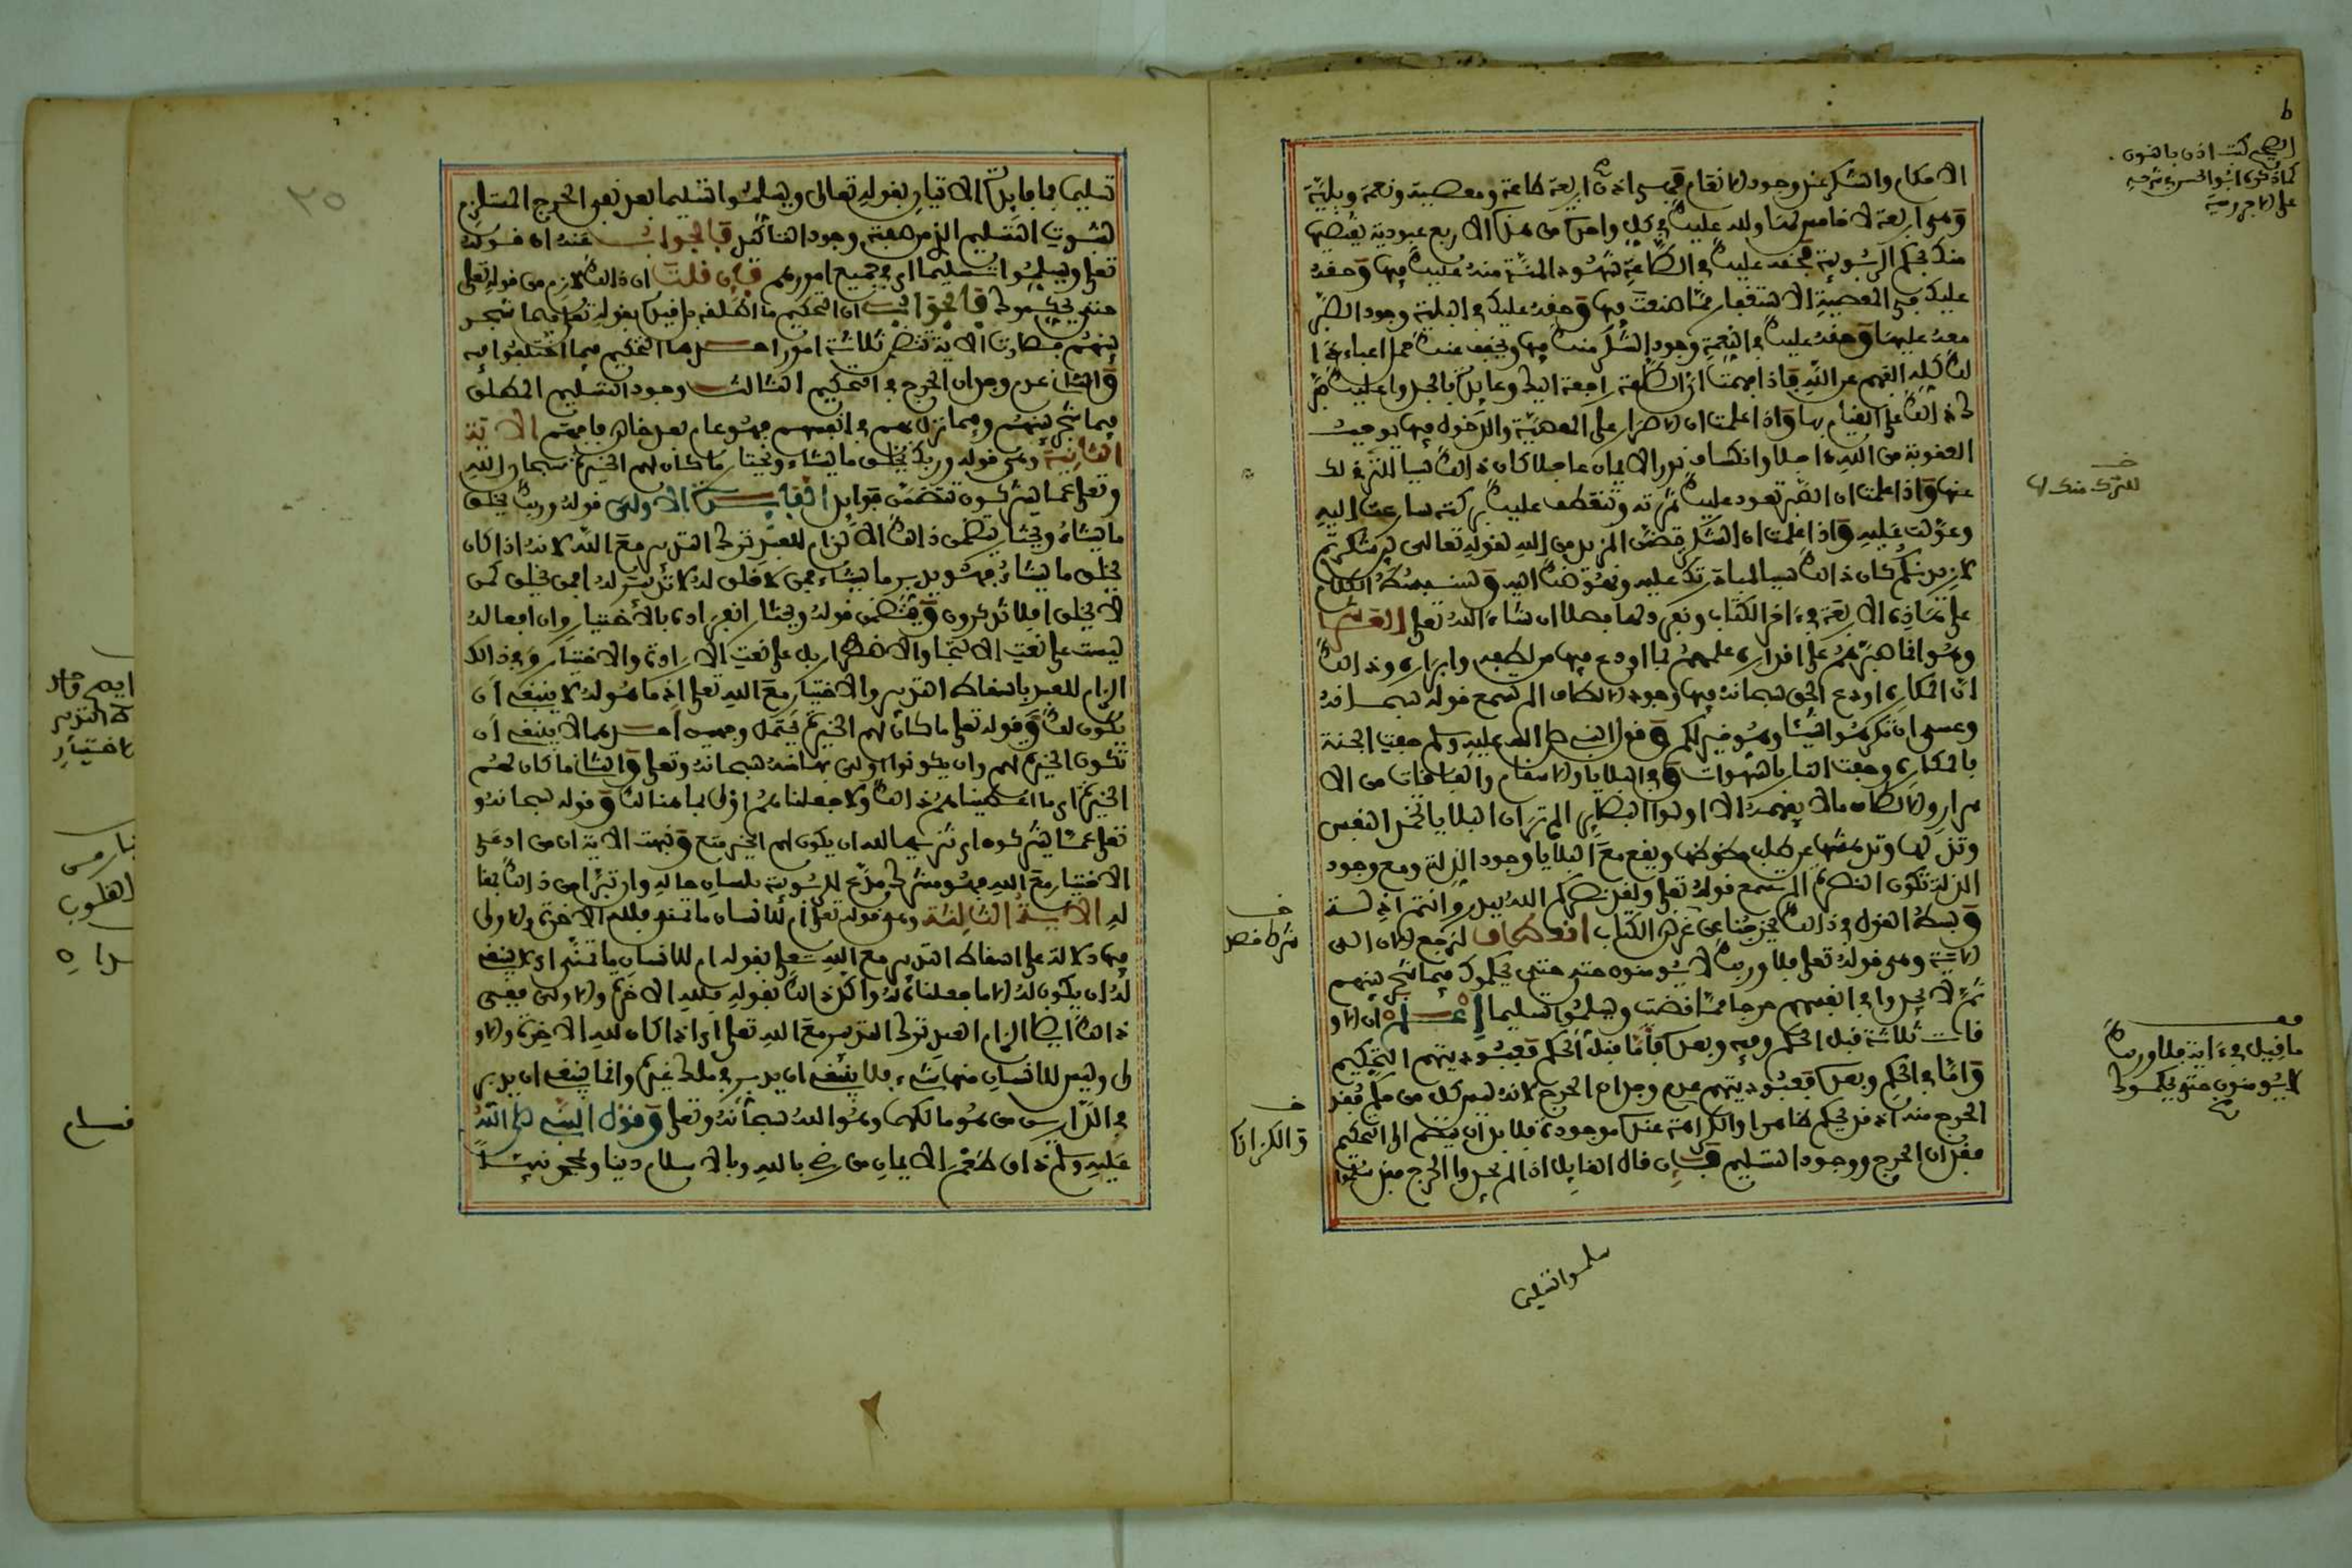 الاحكام والشكر عند وجود الانعام فهي اذن اربعة طاعة ومعصية ونعمة وبلية
وهي اربعة لا خامس لها ولله عليك في كل واحدة من هذه الاربع عبودية يقتضيها
منك بحكم الربوبية فحقه عليك في الطاعة شهود المنة منه عليك فيها وحقه
عليك في المعصية الاستغفار مما صنعت فيها وحقه عليك في البلية وجود الصبر
معه عليها وحقه عليك في النعمة وجود الشكر منك فيها ويخفف عنك حمل اعباء
ذلك كله الفهم عن الله فاذا فهمت ان الطاعة راجعة اليك وعايدة بالجدوا عليك صبرك
ذلك على القيام بها واذا علمت ان الاصرار على المعصية والدخول فيها يوجب
العقوبة من الله ءاجلا وانكساف نور الايمان عاجلا كان ذلك سببا للترك
عنها واذا علمت ان الصبر تعود عليك ثمرته وتنعطف عليك بركته سارعت اليه
وعولت عليه واذا علمت ان الشكر يتضمن المزيد من الله لقوله تعالى لين شكرتم
لازيدنكم كان ذلك سببا لمثابرتك عليه ونهوضك اليه وسنبسط الكلام
على هذه الاربعة في ءاخر الكتاب ونفرد لها فصلا ان شاء الله تعلى العاشر
وهو انما صبرهم على اقداره علمهم بما اودع فيها من لطفه وابراره وذلك
ان المكاره اودع الحق سبحانه فيها وجود الالطاف الم تسمع قوله سبحانه
وعسى ان تكرهوا شيئا وهو خير لكم وقول النبي صلى الله عليه وسلم حفت الجنة
بالمكاره وحفت النار بالشهوات وفي البلايا والاسقام والفاقات من الا
سرار والالطاف مالا يفهمه الا اولوا البصاير الم تر ان البلايا تخمد النفس
وتذلها وتدهشها عن طلب حظوظها ويقع مع البلايا وجود الذلة ومع وجود
الذلة تكون النصرة الم تسمع قوله تعلى ولقد نصركم الله ببدر وانتم اذلة
وبسط القول في ذلك يخرجنا عن غرض الكتاب انعطاف لنرجع الان الى
الاية وهي قوله تعلى فلا وربك لا يومنون حتى يحكموك فيما شجر بينهم
ثم لا يجدوا في انفسهم حرجا مما قضيت ويسلموا تسليما اعلم ان الاو
قات ثلاثة قبل الحكم وفيه وبعده فاما قبل الحكم فعبوديتهم التحكيم
واما في الحكم وبعده فعبوديتهم عدم وجدان الحرج لانه ليس كل من حكم فقد
الحرج منه اذ قد يحكم ظاهرا والكراهة عنده موجودة فلا بد ان ينضم الى التحكيم
فقدان الحرج ووجود التسليم فان قال القايل اذا لم يجدوا الحرج فقد سلموا
سلموا تسليما
كما ذكره ابو الحسن في شرحه
على الاجرومية
للترك منك لها
ما قيل في ءاية فلا وربك
لا يومنون حتى يحكموك
تسليما فما فايدة الاتيان بقوله تعالى ويسلموا تسليما بعد نفي الحرج المستلزم
لثبوت التسليم الذي من صفته وجود التاكيد فالجواب عنه ان قوله
تعلى ويسلموا تسليما اي في جميع امورهم فان قلت ان ذلك لازم من قوله تعلى
حتى يحكموك فالجواب ان التحكيم ما اطلقه بل قيده بقوله تعلى فيما شجر
بينهم فصارت الاية تتضمن ثلاثة امور احدها التحكيم فيما اختلفوا فيه
والثاني عدم وجدان الحرج في التحكيم الثالث وجود التسليم المطلق
فيما شجر بينهم وفيما نزل بهم في انفسهم فهو عام بعد خاص فافهم الاية
الثانية وهي قوله وربك يخلق ما يشاء ويختار ما كان لهم الخيرة سبحان الله
وتعلى عما يشركون تتضمن فوايد الفايدة الاولى قوله وربك يخلق
ما يشاء ويختار يتضمن ذلك الالزام للعبد بترك التدبير مع الله لانه اذا كان
يخلق ما يشاء فهو يدبر ما يشاء فمن لا خلق له لا تدبير له افمن يخلق كمن
لا يخلق افلا تذكرون ويتضمن قوله ويختار انفراده بالاختيار وان افعاله
ليست على نعت الالتجا والاضطرار بل على نعت الارادة والاختيار وفي ذلك
الزام للعبد باسقاط التدبير والاختيار مع الله تعلى اذ ما هو له لا ينبغي ان
يكون لك وقوله تعلى ما كان لهم الخيرة يحتمل وجهين احدهما لا ينبغي ان
تكون الخيرة لهم وان يكونوا اولى بها منه سبحانه وتعلى والثاني ما كان لهم
الخيرة اي ما اعطيناهم ذلك ولا جعلناهم اولى بما هنالك وقوله سبحانه و
تعلى عما يشركون اي تنزيها لله ان يكون لهم الخيرة معه وبينت الاية ان من ادعى
الاختيار مع الله فهو مشرك مدع للربوبية بلسان حاله وان تبرا من ذلك بمقا
له الاية الثالثة وهي قوله تعلى ام للانسان ما تمنى فلله الاخرة والاولى
فيها دلالة على اسقاط التدبير مع الله تعلى بقوله ام للانسان ما تمنى اي لا ينبغي
له ان يكون له لاما جعلناه له واكد ذلك بقوله فلله الاخرة والاولى ففي
ذلك ايضا الزام العبد بترك التدبير مع الله تعلى اي اذا كان لله الاخرة والاو
لى وليس للانسان منها شيء فلا ينبغي ان يدبر في ملك غيره وانما ينبغي ان يدبر
في الدارين من هو مالكهما وهو الله سبحانه وتعلى وقول النبي صلى الله
عليه وسلم ذاق طعم الايمان من رضي بالله وبالاسلام دينا وبمحمد نبيا
٢٥